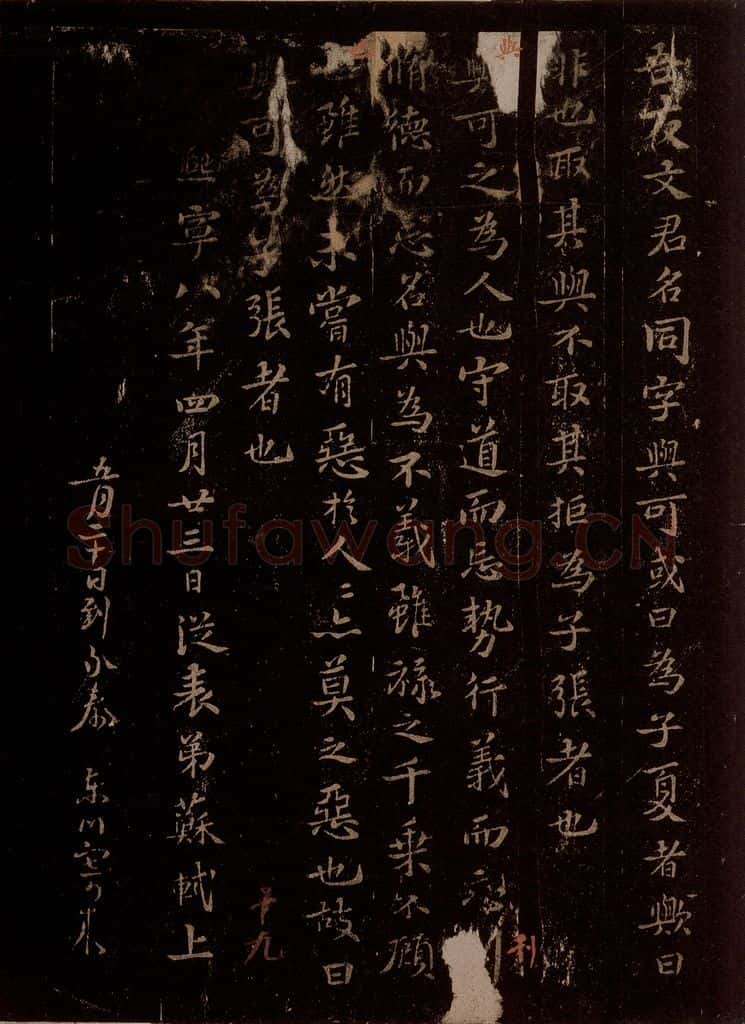 吾友文君名同字與可或曰為子夏者歟曰
非也取其與不取其拒為子張者也
與可之為人也守道而忘勢行義而忘
與
利
脩德而忘名與為不義雖祿之千乘不顧
雖然未嘗有惡於人人亦莫之惡也故曰
與可為子張者也
熙寧八年四月廿三日從表弟蘇軾上
十九
五月二十日到永泰
Shufawang.CN